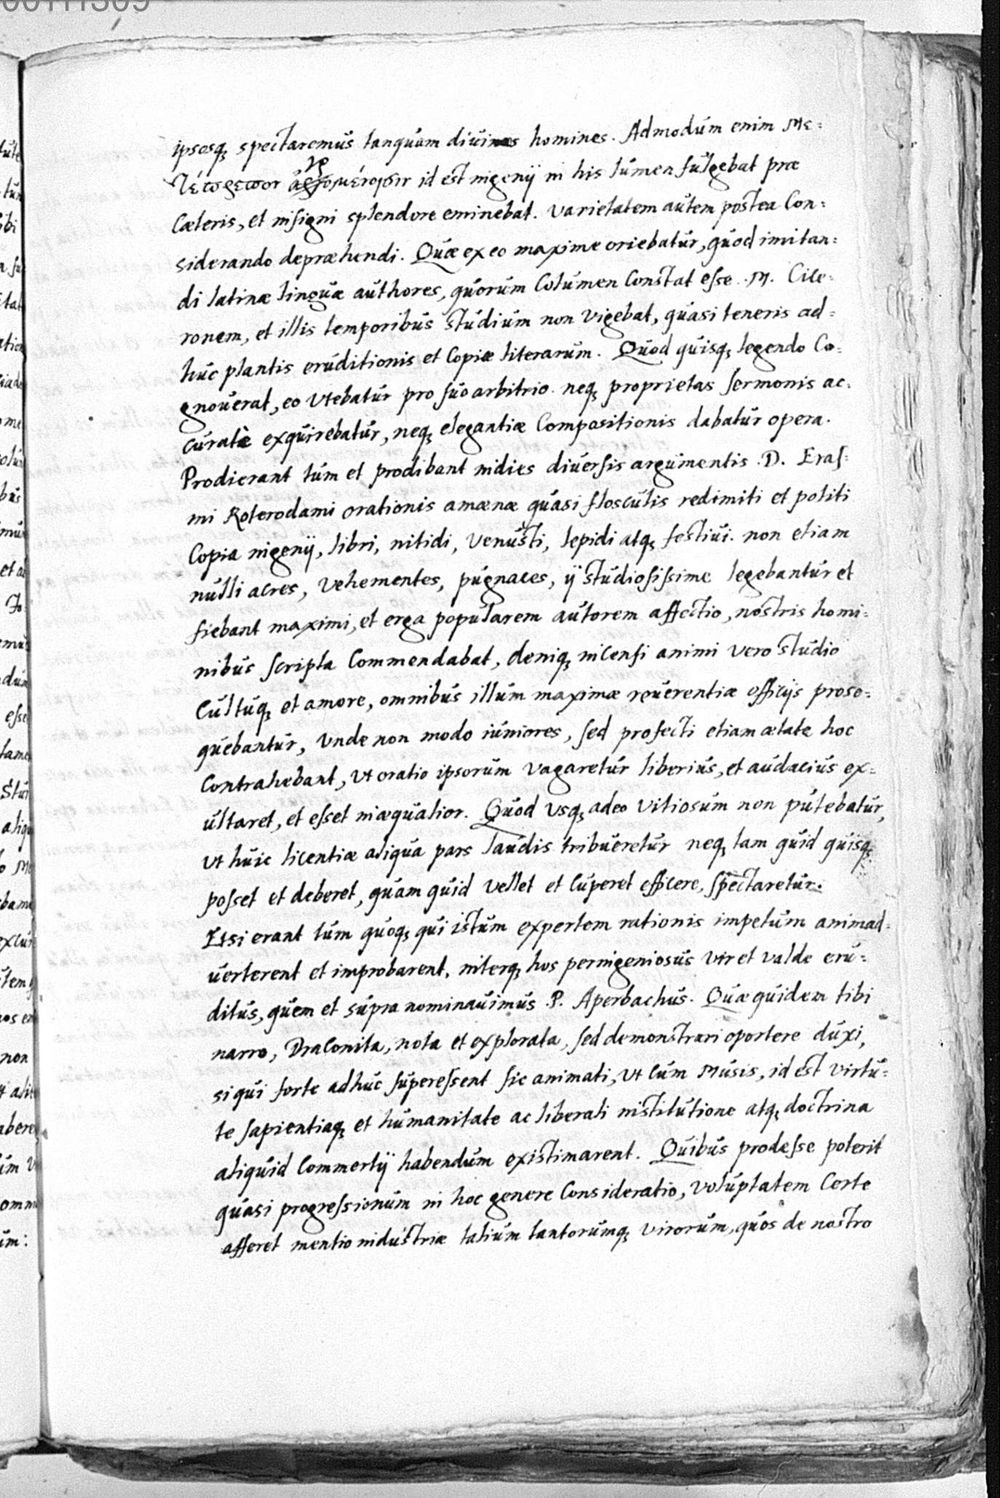 ipsosq; spectaremus tanquam diuinos homines. Admodum enim Me:
id est ingenij in his lumen fulgebat præ
Cæteris, et insigni splendore eminebat. Varietatem autem postea Con:
siderando depræhendi. Quæ ex eo maxime oriebatur, quod imitan:
di latinæ linguæ authores, quorum Columen Constat esse .M. Cice:
ronem, et illis temporibus studium non vigebat, quasi teneris ad:
huc plantis eruditionis et Copiæ literarum. Quod quisq; legendo Co:
gnouerat, eo vtebatur pro suo arbitrio. neq; proprietas sermonis ac:
curatè exquirebatur, neq; elegantiæ Compositionis dabatur opera.
Prodierant tum et prodibant indies diuersis argumentis .D. Eras:
mi Roterodami orationis amænæ quasi flosculis redimiti et politi
Copia ingenij, libri, nitidi, venusti, lepidi atq; festiui. non etiam
nulli acres, vehementes, pugnaces, ij studiosissime legebantur et
fiebant maximi, et erga popularem autorem affectio, nostris homi:
nibus scripta Commendabat, deniq; incensi animi vero studio
Cultuq; et amore, omnibus illum maximæ reuerentiæ officijs prose:
quebantur, Vnde non modo iuniores, sed profecti etiam ætate hoc
Contrahebant, vt oratio ipsorum vagaretur liberius, et audacius ex:
ultaret, et esset inæqualior. Quod vsq; adeo vitiosum non putebatur,
vt huic licentiæ aliqua pars laudis tribueretur neq; tam quid quisq;
posset et deberet, quam quid vellet et Cuperet efficere, spectaretur.
Etsi erant tum quoq; qui istum expertem rationis impetum animad:
uerterent et improbarent, interq; hos peringeniosus vir et valde eru:
ditus, quem et supra nominauimus .P. Aperbachus. Quæ quidem tibi
narro, Draconita, nota et explorata, sed demonstrari oportere duxi,
si qui forte adhuc superessent sic animati, vt Cum Musis, id est virtu:
te sapientiaq; et humanitate ac liberali institutione atq; doctrina
aliquid Commertij habendum existimarent. Quibus prodesse poterit
quasi progressionum in hoc genere Consideratio, voluptatem Certe
afferet mentio industriæ talium tantorumq; virorum, quos de nostro